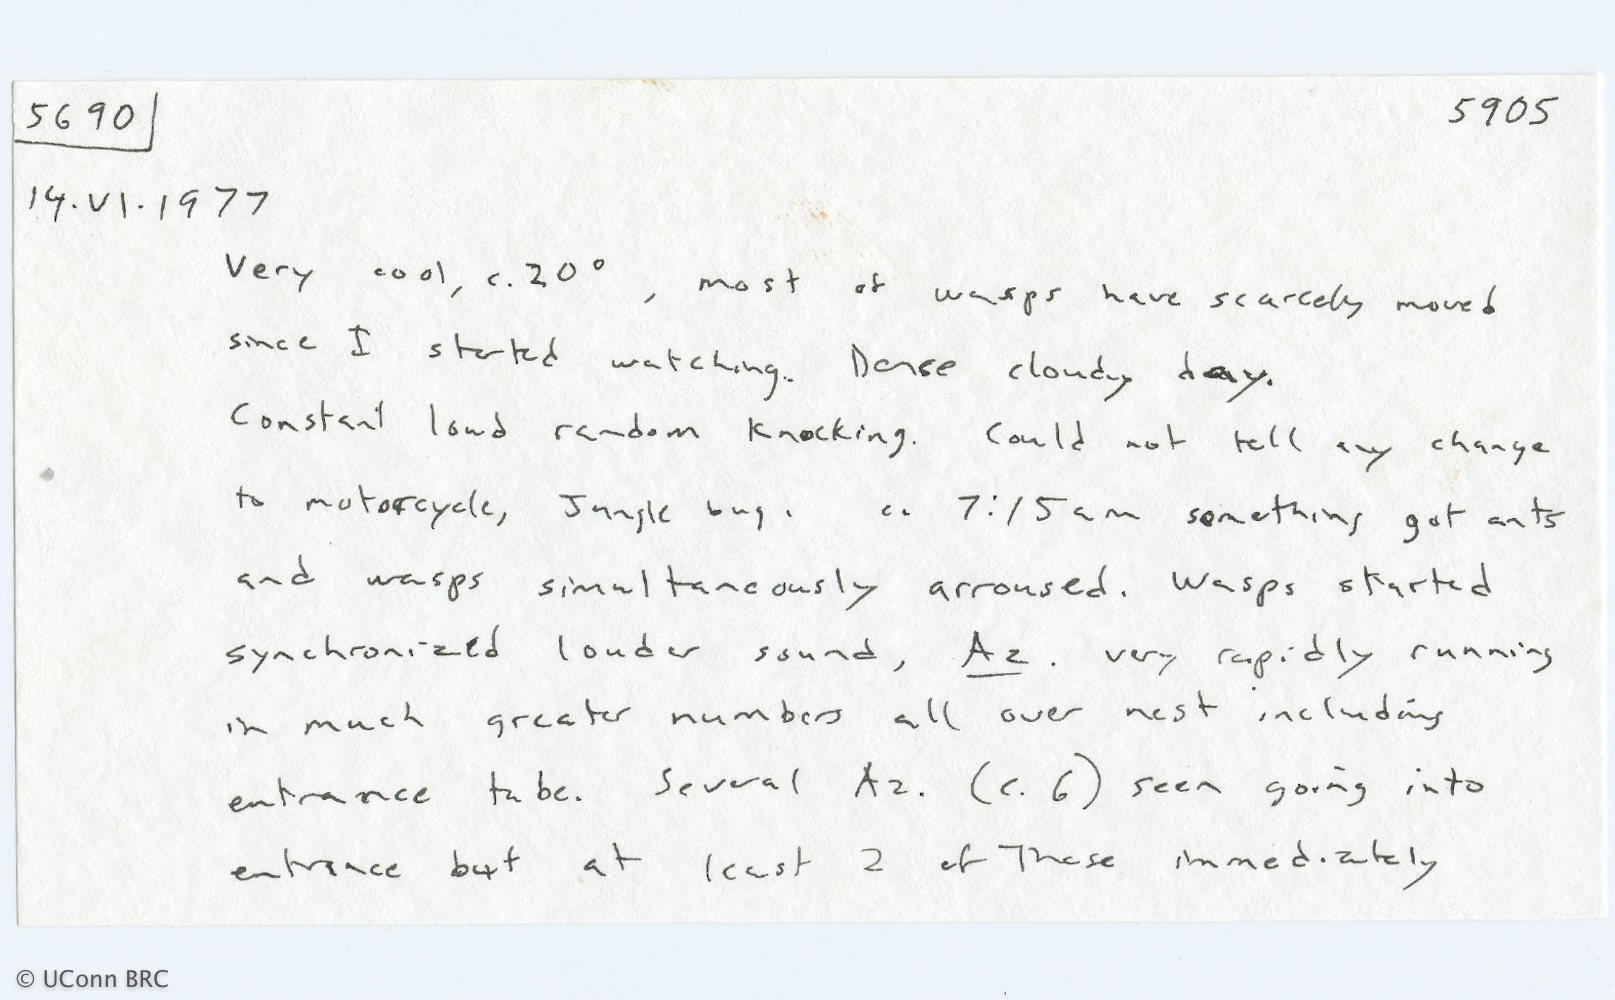 5690
5905
14.VI.1977
Very cool, c. 20°, most of wasps have scarcely moved
since I started watching. Dense cloudy day.
Constant loud random knocking. Could not tell any change
to motorcycle, Jungle bug. c. 7:15am something got ants
and wasps simultaneously arroused. Wasps started
synchronized louder sound, Az. very rapidly running
in much greater numbers all over nest including
entrance tube. Several Az. (c. 6) seen going into
entrance but at least 2 of These immediately
© UConn BRC